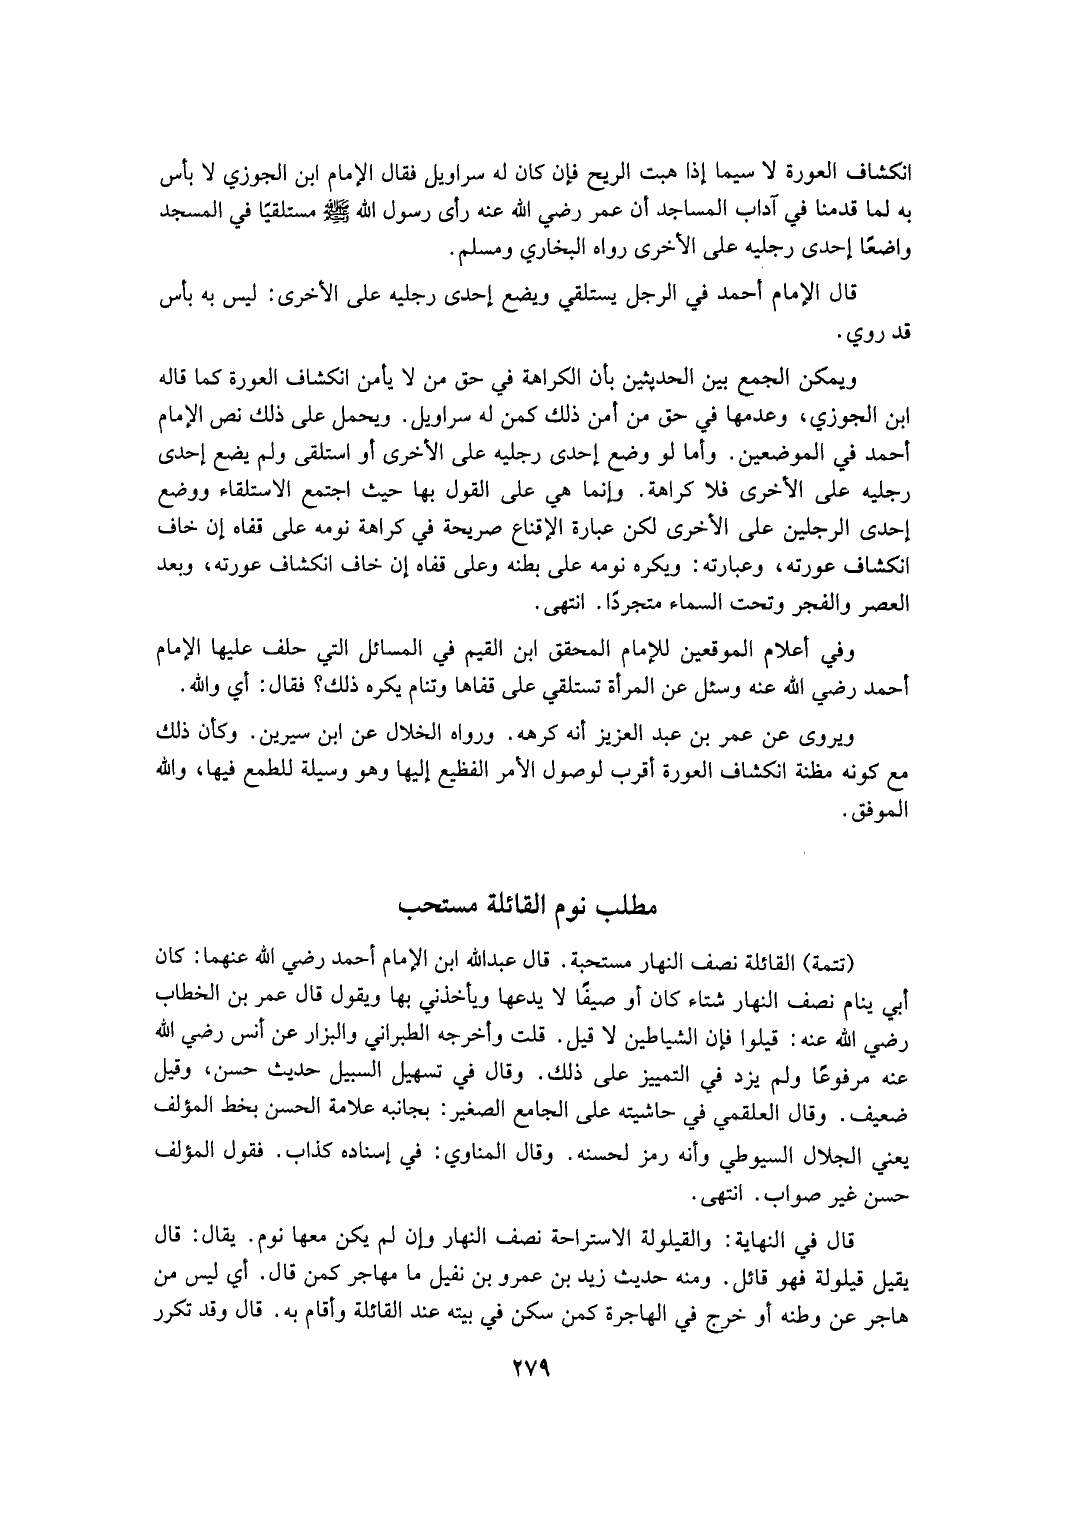 انكشاف العورة لا سيما إذا هبت الريح فإن كان له سراويل فقال الإمام ابن الجوزي لا بأس
به لما قدمنا في آداب المساجد أن عمر رضي الله عنه رأى رسول الله ﷺ مستلقيًا في المسجد
واضعًا إحدى رجليه على الأخرى رواه البخاري ومسلم.
قال الإمام أحمد في الرجل يستلقي ويضع إحدى رجليه على الأخرى: ليس به بأس
قد روي.
ويمكن الجمع بين الحديثين بأن الكراهة في حق من لا يأمن انكشاف العورة كما قاله
ابن الجوزي، وعدمها في حق من أمن ذلك كمن له سراويل. ويحمل على ذلك نص الإمام
أحمد في الموضعين. وأما لو وضع إحدى رجليه على الأخرى أو استلقى ولم يضع إحدى
رجليه على الأخرى فلا كراهة. وإنما هي على القول بها حيث اجتمع الاستلقاء ووضع
إحدى الرجلين على الأخرى لكن عبارة الإقناع صريحة في كراهة نومه على قفاه إن خاف
انكشاف عورته، وعبارته: ويكره نومه على بطنه وعلى قفاه إن خاف انكشاف عورته، وبعد
العصر والفجر وتحت السماء متجردًا. انتهى.
وفي أعلام الموقعين للإمام المحقق ابن القيم في المسائل التي حلف عليها الإمام
أحمد رضي الله عنه وسئل عن المرأة تستلقي على قفاها وتنام يكره ذلك؟ فقال: أي والله.
ويروى عن عمر بن عبد العزيز أنه كرهه. ورواه الخلال عن ابن سيرين. وكأن ذلك
مع كونه مظنة انكشاف العورة أقرب لوصول الأمر الفظيع إليها وهو وسيلة للطمع فيها، والله
الموفق.
مطلب نوم القائلة مستحب
(تتمة) القائلة نصف النهار مستحبة. قال عبدالله ابن الإمام أحمد رضي الله عنهما: كان
أبي ينام نصف النهار شتاء كان أو صيفًا لا يدعها ويأخذني بها ويقول قال عمر بن الخطاب
رضي الله عنه: قيلوا فإن الشياطين لا قيل. قلت وأخرجه الطبراني والبزار عن أنس رضي الله
عنه مرفوعًا ولم يزد في التمييز على ذلك. وقال في تسهيل السبيل حديث حسن، وقيل
ضعيف. وقال العلقمي في حاشيته على الجامع الصغير: بجانبه علامة الحسن بخط المؤلف
يعني الجلال السيوطي وأنه رمز لحسنه. وقال المناوي: في إسناده كذاب. فقول المؤلف
حسن غير صواب. انتهى.
قال في النهاية: والقيلولة الاستراحة نصف النهار وإن لم يكن معها نوم. يقال: قال
يقيل قيلولة فهو قائل. ومنه حديث زيد بن عمرو بن نفيل ما مهاجر كمن قال. أي ليس من
هاجر عن وطنه أو خرج في الهاجرة كمن سكن في بيته عند القائلة وأقام به. قال وقد تكرر
٢٧٩